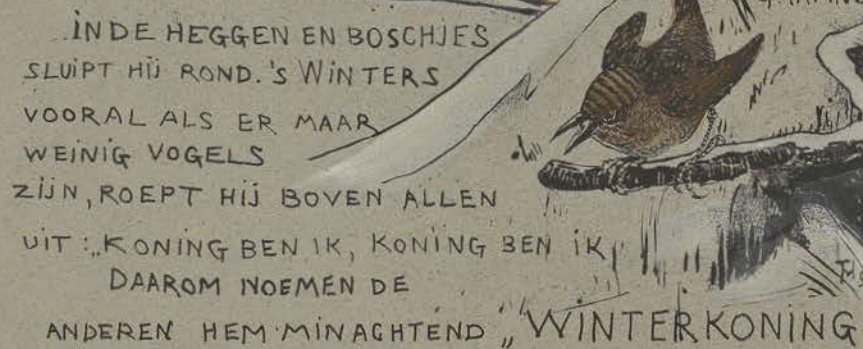 IN DE HEGGEN EN BOSCHJES
SLUIPT HIJ ROND. 'S WINTERS
VOORAL ALS ER MAAR
WEINIG VOGELS
ZIJN, ROEPT HIJ BOVEN ALLEN
UIT: „KONING BEN IK, KONING BEN IK
DAAROM NOEMEN DE
ANDEREN HEM MINACHTEND „WINTERKONING